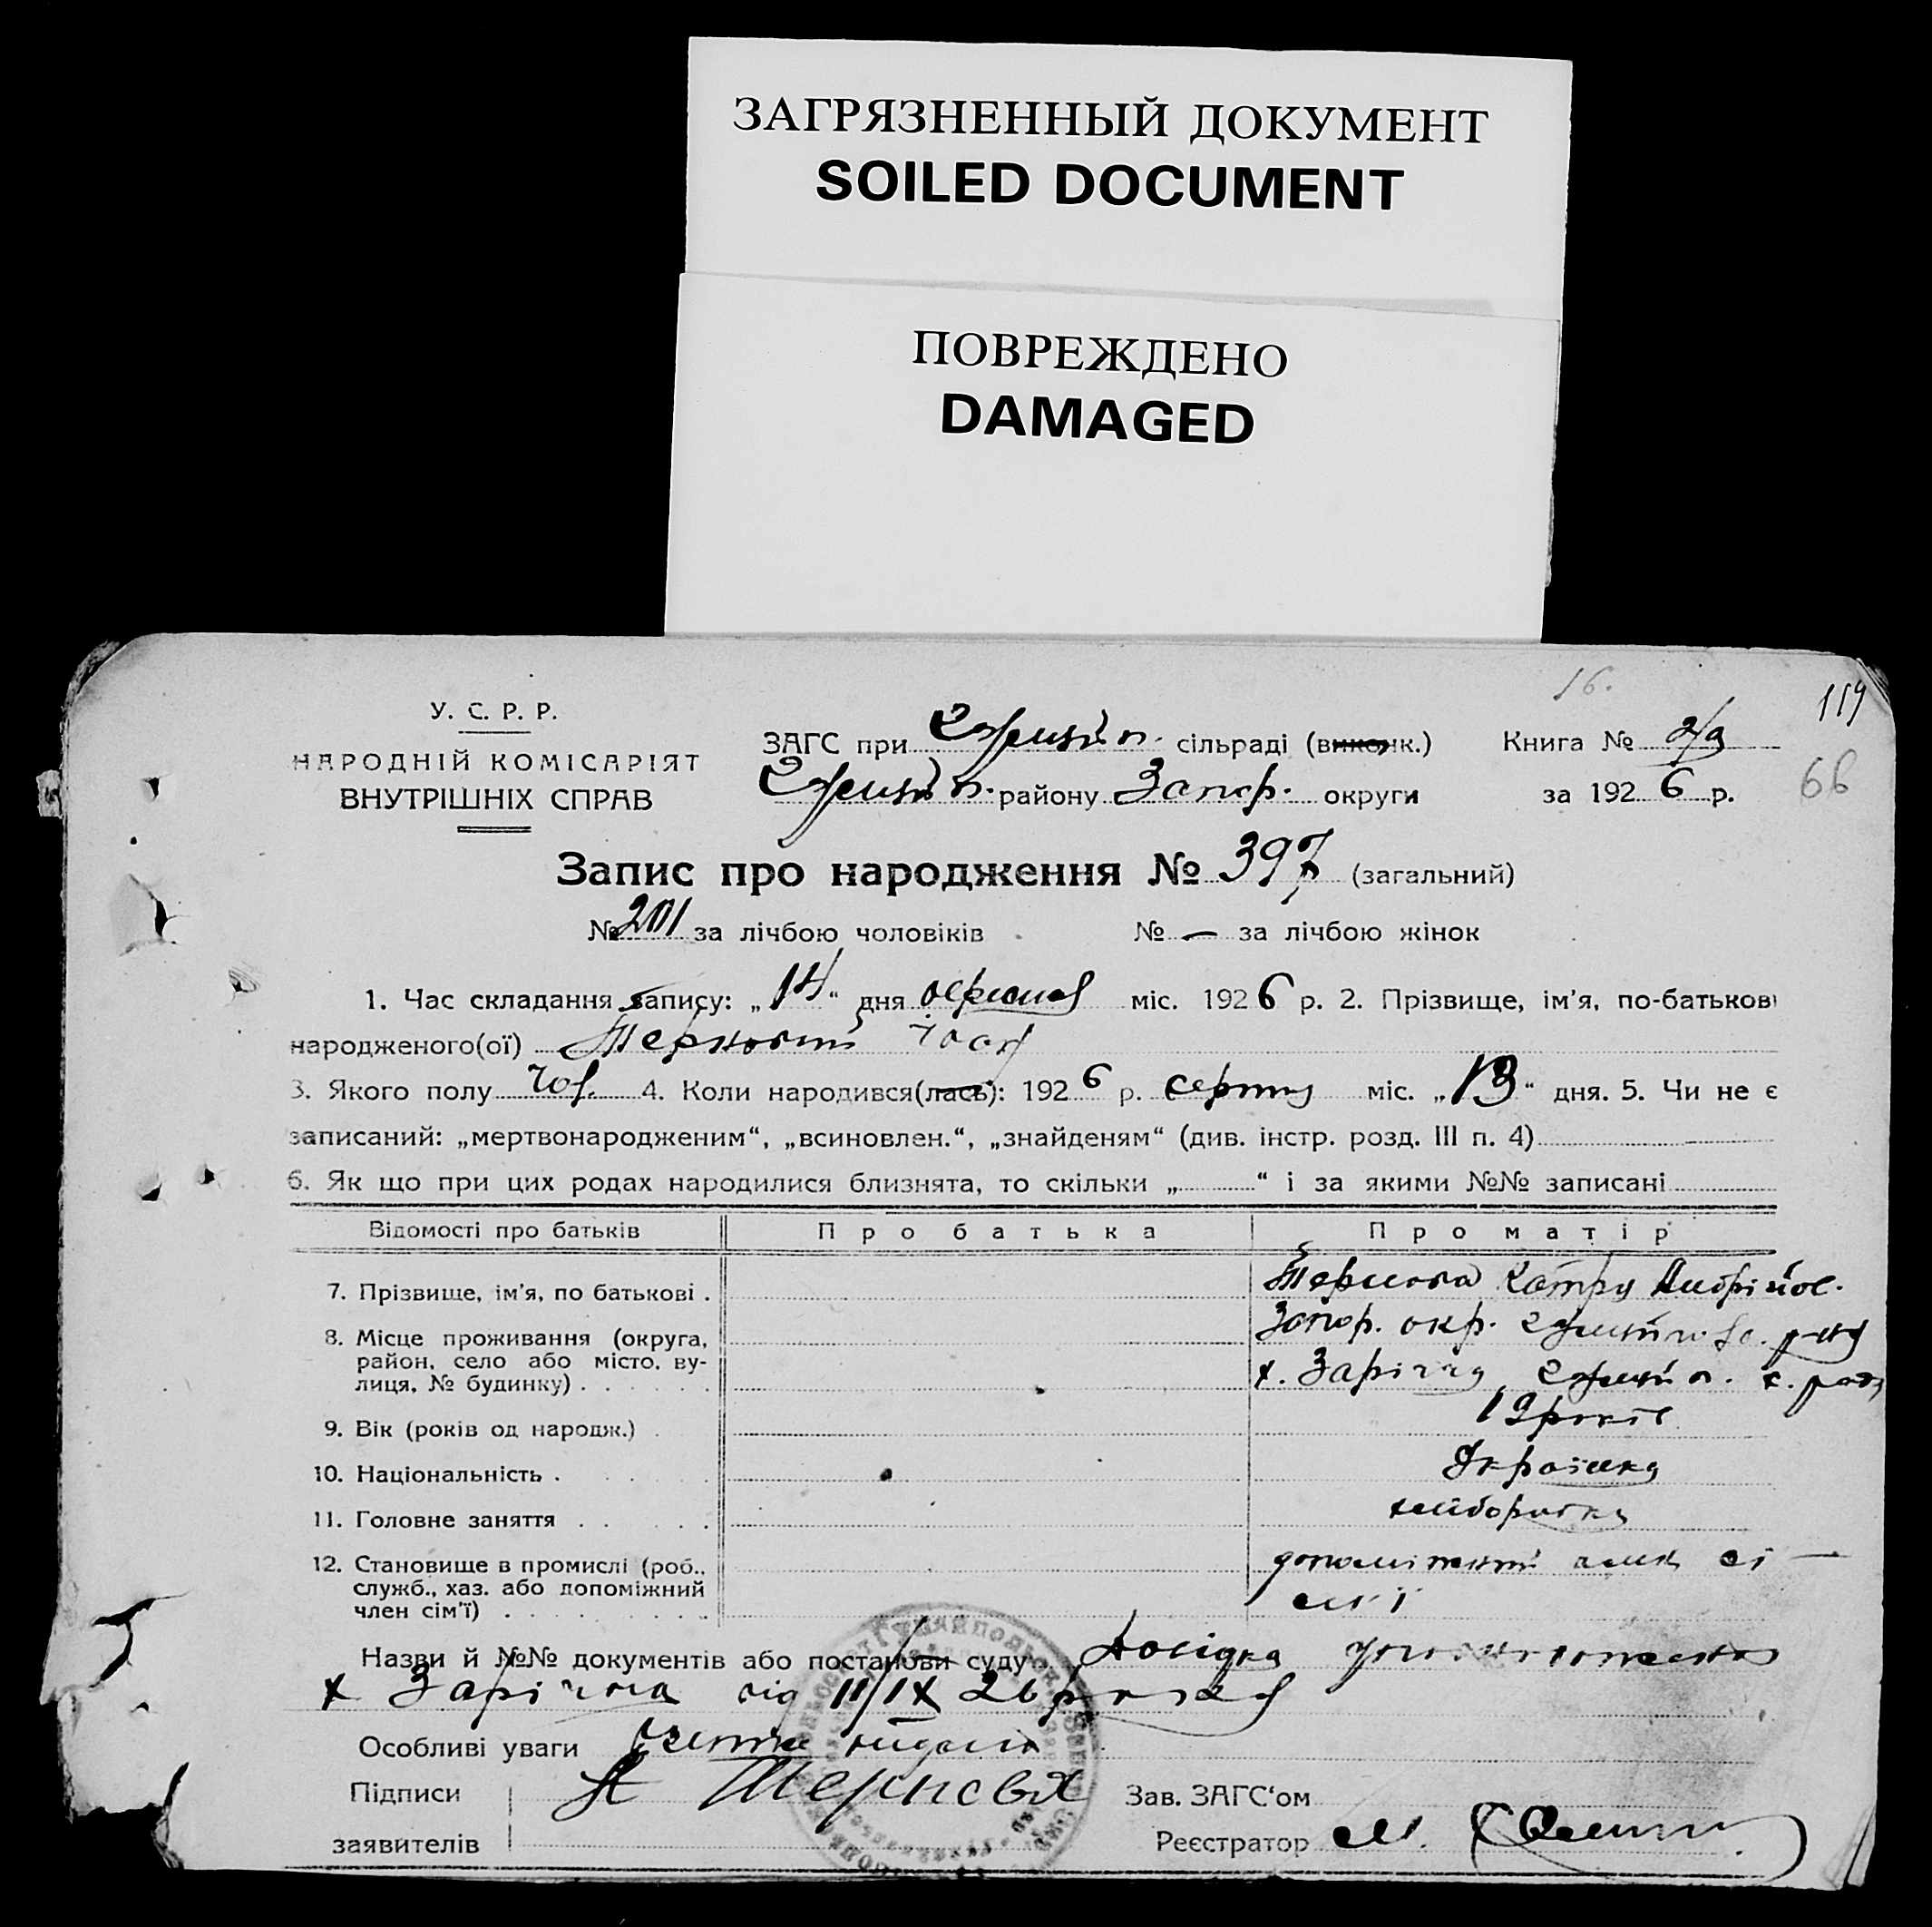 ЗАГРЯЗНЕННЫЙ ДОКУМЕНТ
SOILED DOCUMENT
ПОВРЕЖДЕНО
DAMAGED
16.
119
У. С. Р. Р.
НАРОДНІЙ КОМІСАРІЯТ
ВНУТРІШНІХ СПРАВ
ЗАГС при сільраді (виконк.) Книга №
району Запор. округи за 1926 р.
Запис про народження № 397 (загальний)
№ 201 за лічбою чоловіків № — за лічбою жінок
1. Час складання запису: „14“ дня вересня міс. 1926 р. 2. Прізвище, ім'я, по-батькові
народженого(ої) Терновий
3. Якого полу чол. 4. Коли народився(лась): 1926 р. серпня міс. „13“ дня. 5. Чи не є
записаний: „мертвонародженим“, „всиновлен.“, „знайденям“ (див. інстр. розд. III п. 4)
6. Як що при цих родах народилися близнята, то скільки „ “ і за якими №№ записані
Відомості про батьків Про батька Про матір
7. Прізвище, ім'я, по батькові . Тернова Катря Андрійов.
8. Місце проживання (округа, Запор. окр.
район, село або місто, ву-
лиця, № будинку) . х. Зарічча
9. Вік (років од народж.) . 19 років
10. Національність . Українка
11. Головне заняття . хліборобка
12. Становище в промислі (роб., допоміжний член сі-
служб., хаз. або допоміжний
член сім'ї) . м'ї
Назви й №№ документів або постанови суду Довідка уповноваженого
х Зарічча від 11/IX 26 року
Особливі уваги
Підписи А Тернова Зав. ЗАГС'ом
заявителів Реєстратор